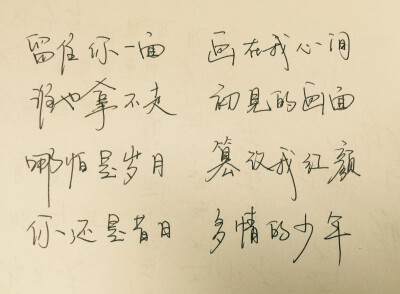 留住你一面 画在我心间
谁也拿不走 初見的画面
哪怕是岁月 篡改我红颜
你还是昔日 多情的少年